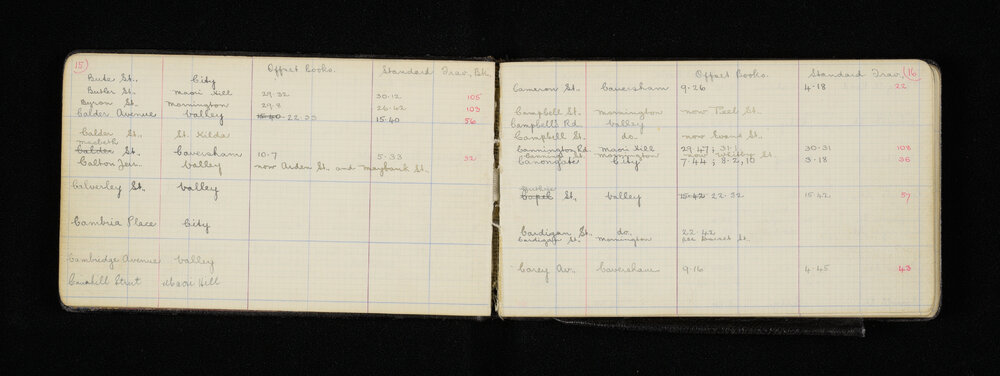 15
Offset Books. Standard Trav. Bk.
Bute St. City
Butler St. Maori Hill 29.32 30.12 105
Byron St. Mornington 29.8 26.42 103
Calder Avenue Valley 15.40 22.33 15.40 56
Calder St. St. Kilda
Macbeth
Calder St. Caversham 10.7 5.33 32
Calton Terr. Valley now Arden St. and Maybank St.
Calverley St. Valley
Cambria Place City
Cambridge Avenue Valley
Street Maori Hill
16
Offset Books. Standard Trav.
Cameron St. Caversham 9.26 4.18 22
Campbell St. Mornington now Peel St.
Campbells Rd. Valley
Campbell St. do. now Evans St.
Cannington Rd. Maori Hill 29.47; 31.1 30.31 108
Canning St. Mornington now Whitby St.
Canongate City 7.44; 8.2,10 3.18 36
Capel St. Valley 15.42 22.32 15.42 57
Cardigan St. do. 22.42
Cardigan St. Mornington see Barnet St.
Carey Av. Caversham 9.16 4.45 43